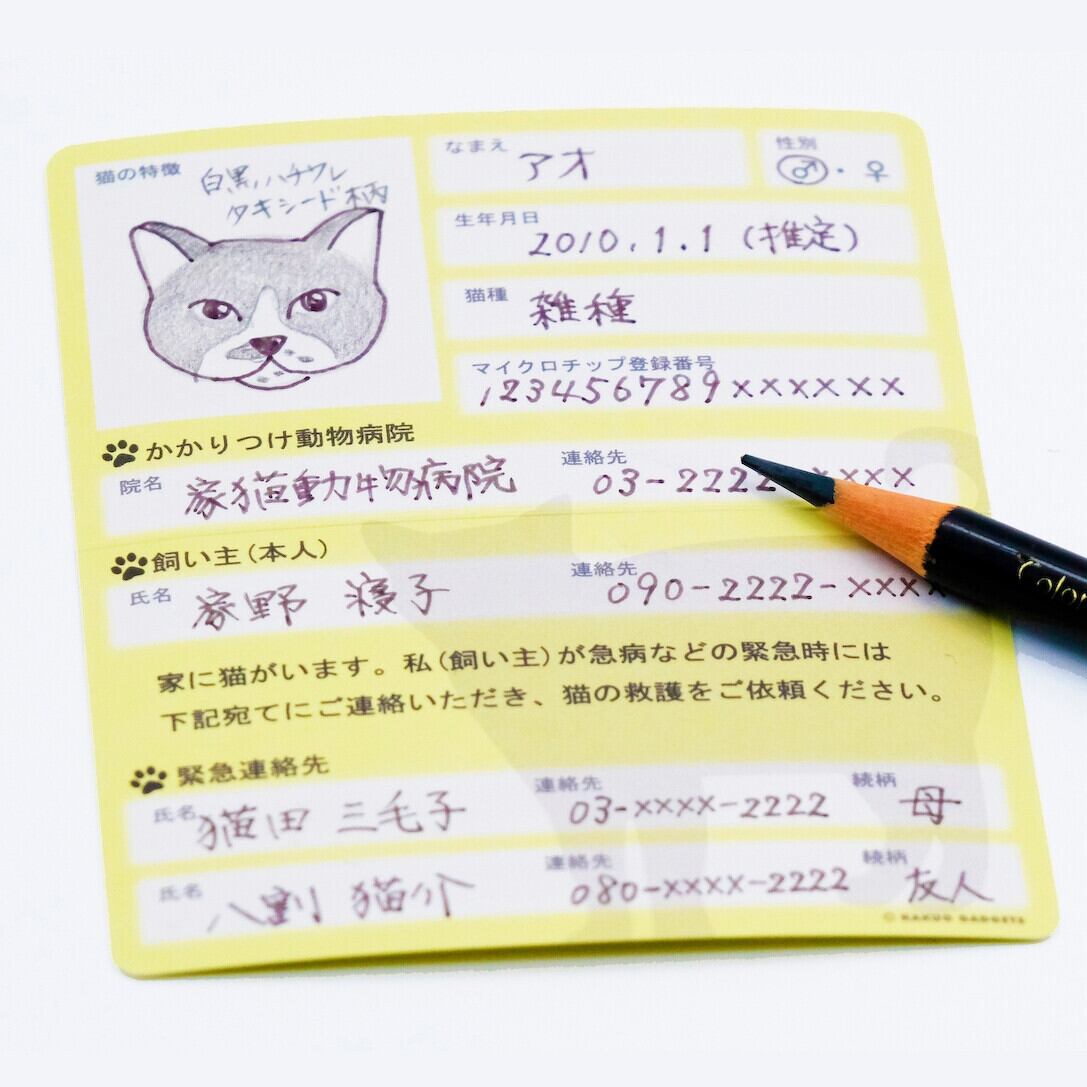 猫の特徴
白黒ハチワレ
タキシード柄
なまえ アオ
性別 ♂・♀
生年月日 2010.1.1 (推定)
猫種 雑種
マイクロチップ登録番号
123456789××××××
かかりつけ動物病院
院名 家猫動物病院 連絡先 03-2222 ××××
飼い主(本人)
氏名 家野 寝子 連絡先 090-2222-××××
家に猫がいます。私(飼い主)が急病などの緊急時には
下記宛てにご連絡いただき、猫の救護をご依頼ください。
緊急連絡先
氏名 猫田 三毛子 連絡先 03-××××-2222 続柄 母
氏名 八割 猫介 連絡先 080-××××-2222 続柄 友人
© KAKUO GADGETS
Color